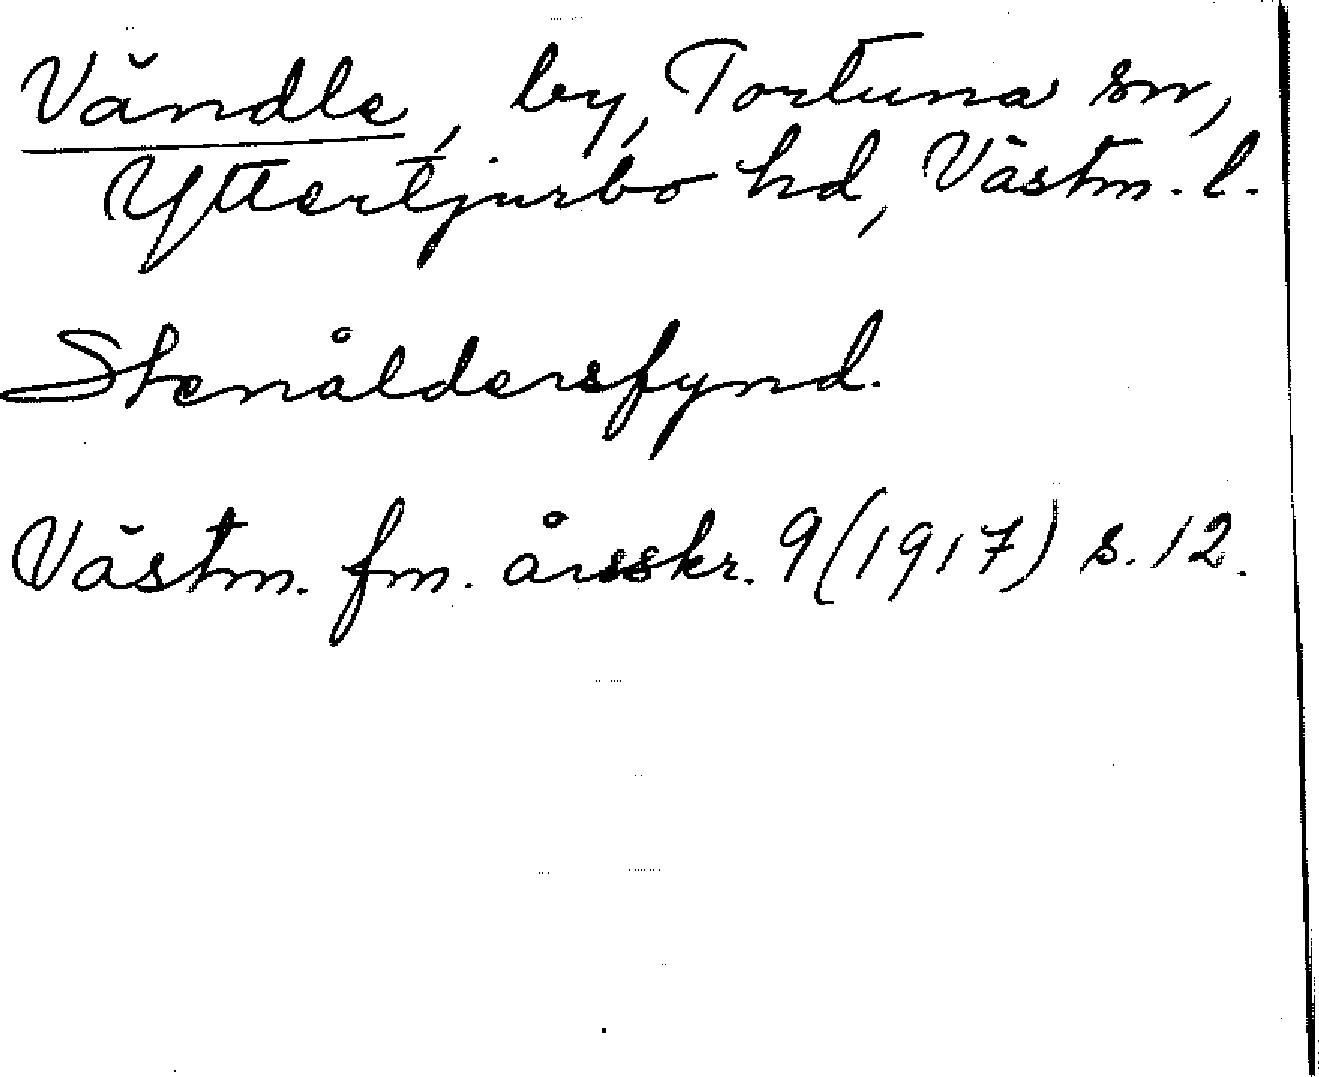 Vändle, by, Tortuna sn,
Yttertjurbo hd, Västm. l.
Stenåldersfynd.
Västm. fm. årsskr. 9 (1917) s. 12.